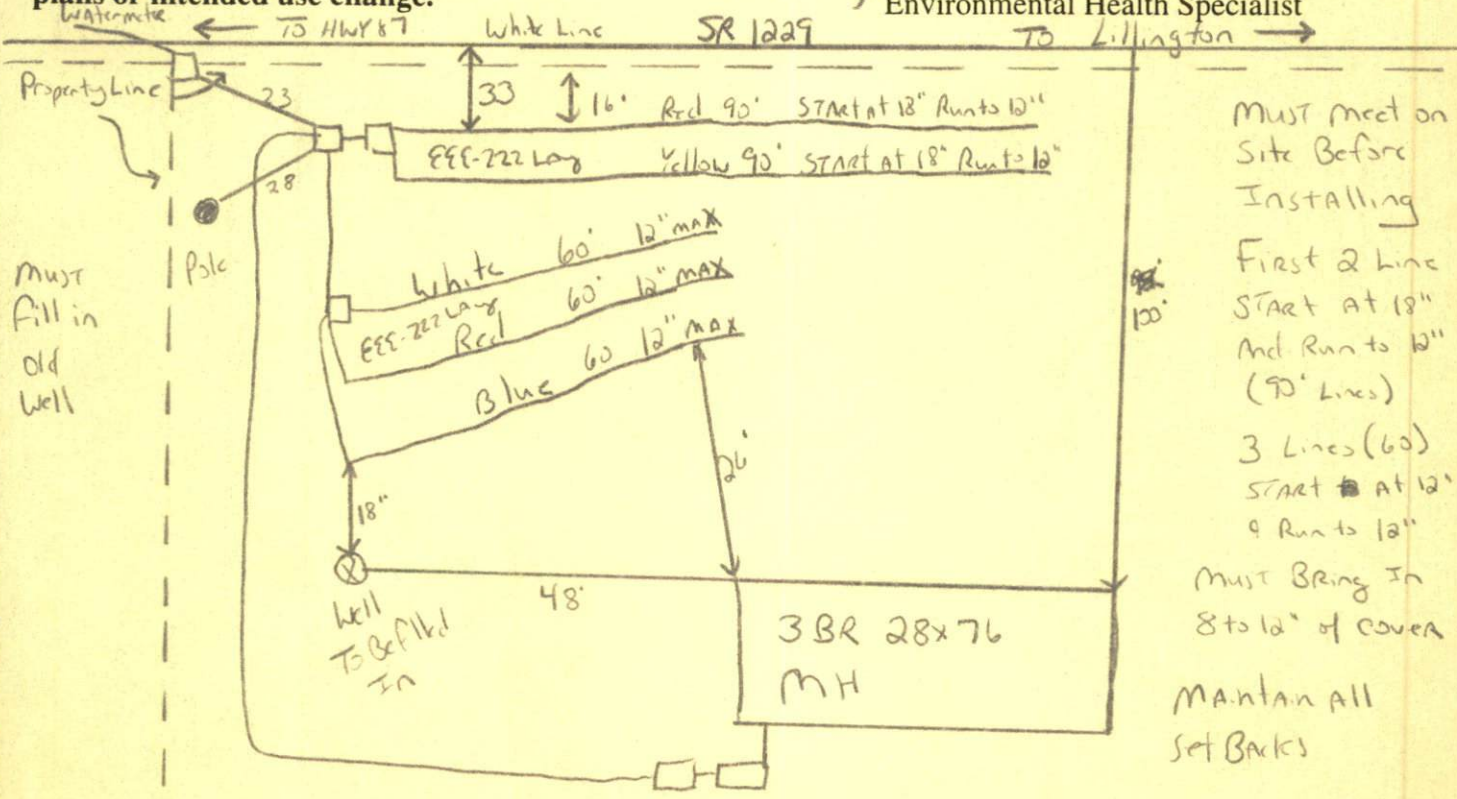 plans or intended use change.
Environmental Health Specialist
Watermeter
← TO HWY 87 White Line SR 1229 TO Lillington →
Property Line
23
33
16' Red 90' START At 18" Run to 12"
EEE-222 Lay Yellow 90' START At 18" Run to 12"
28
Pole
Must
fill in
old
well
White 60' 12" MAX
EEE-222 Lay
Red 60' 12" MAX
Blue 60 12" MAX
18"
26'
100'
48'
Well
To Be filled
In
3 BR 28x76
MH
Must meet on
Site Before
Installing
First 2 Line
START At 18"
And Run to 12"
(90' Lines)
3 Lines (60)
START At 12"
Run to 12"
Must Bring In
8 to 12" of cover
Mantan All
Set Backs